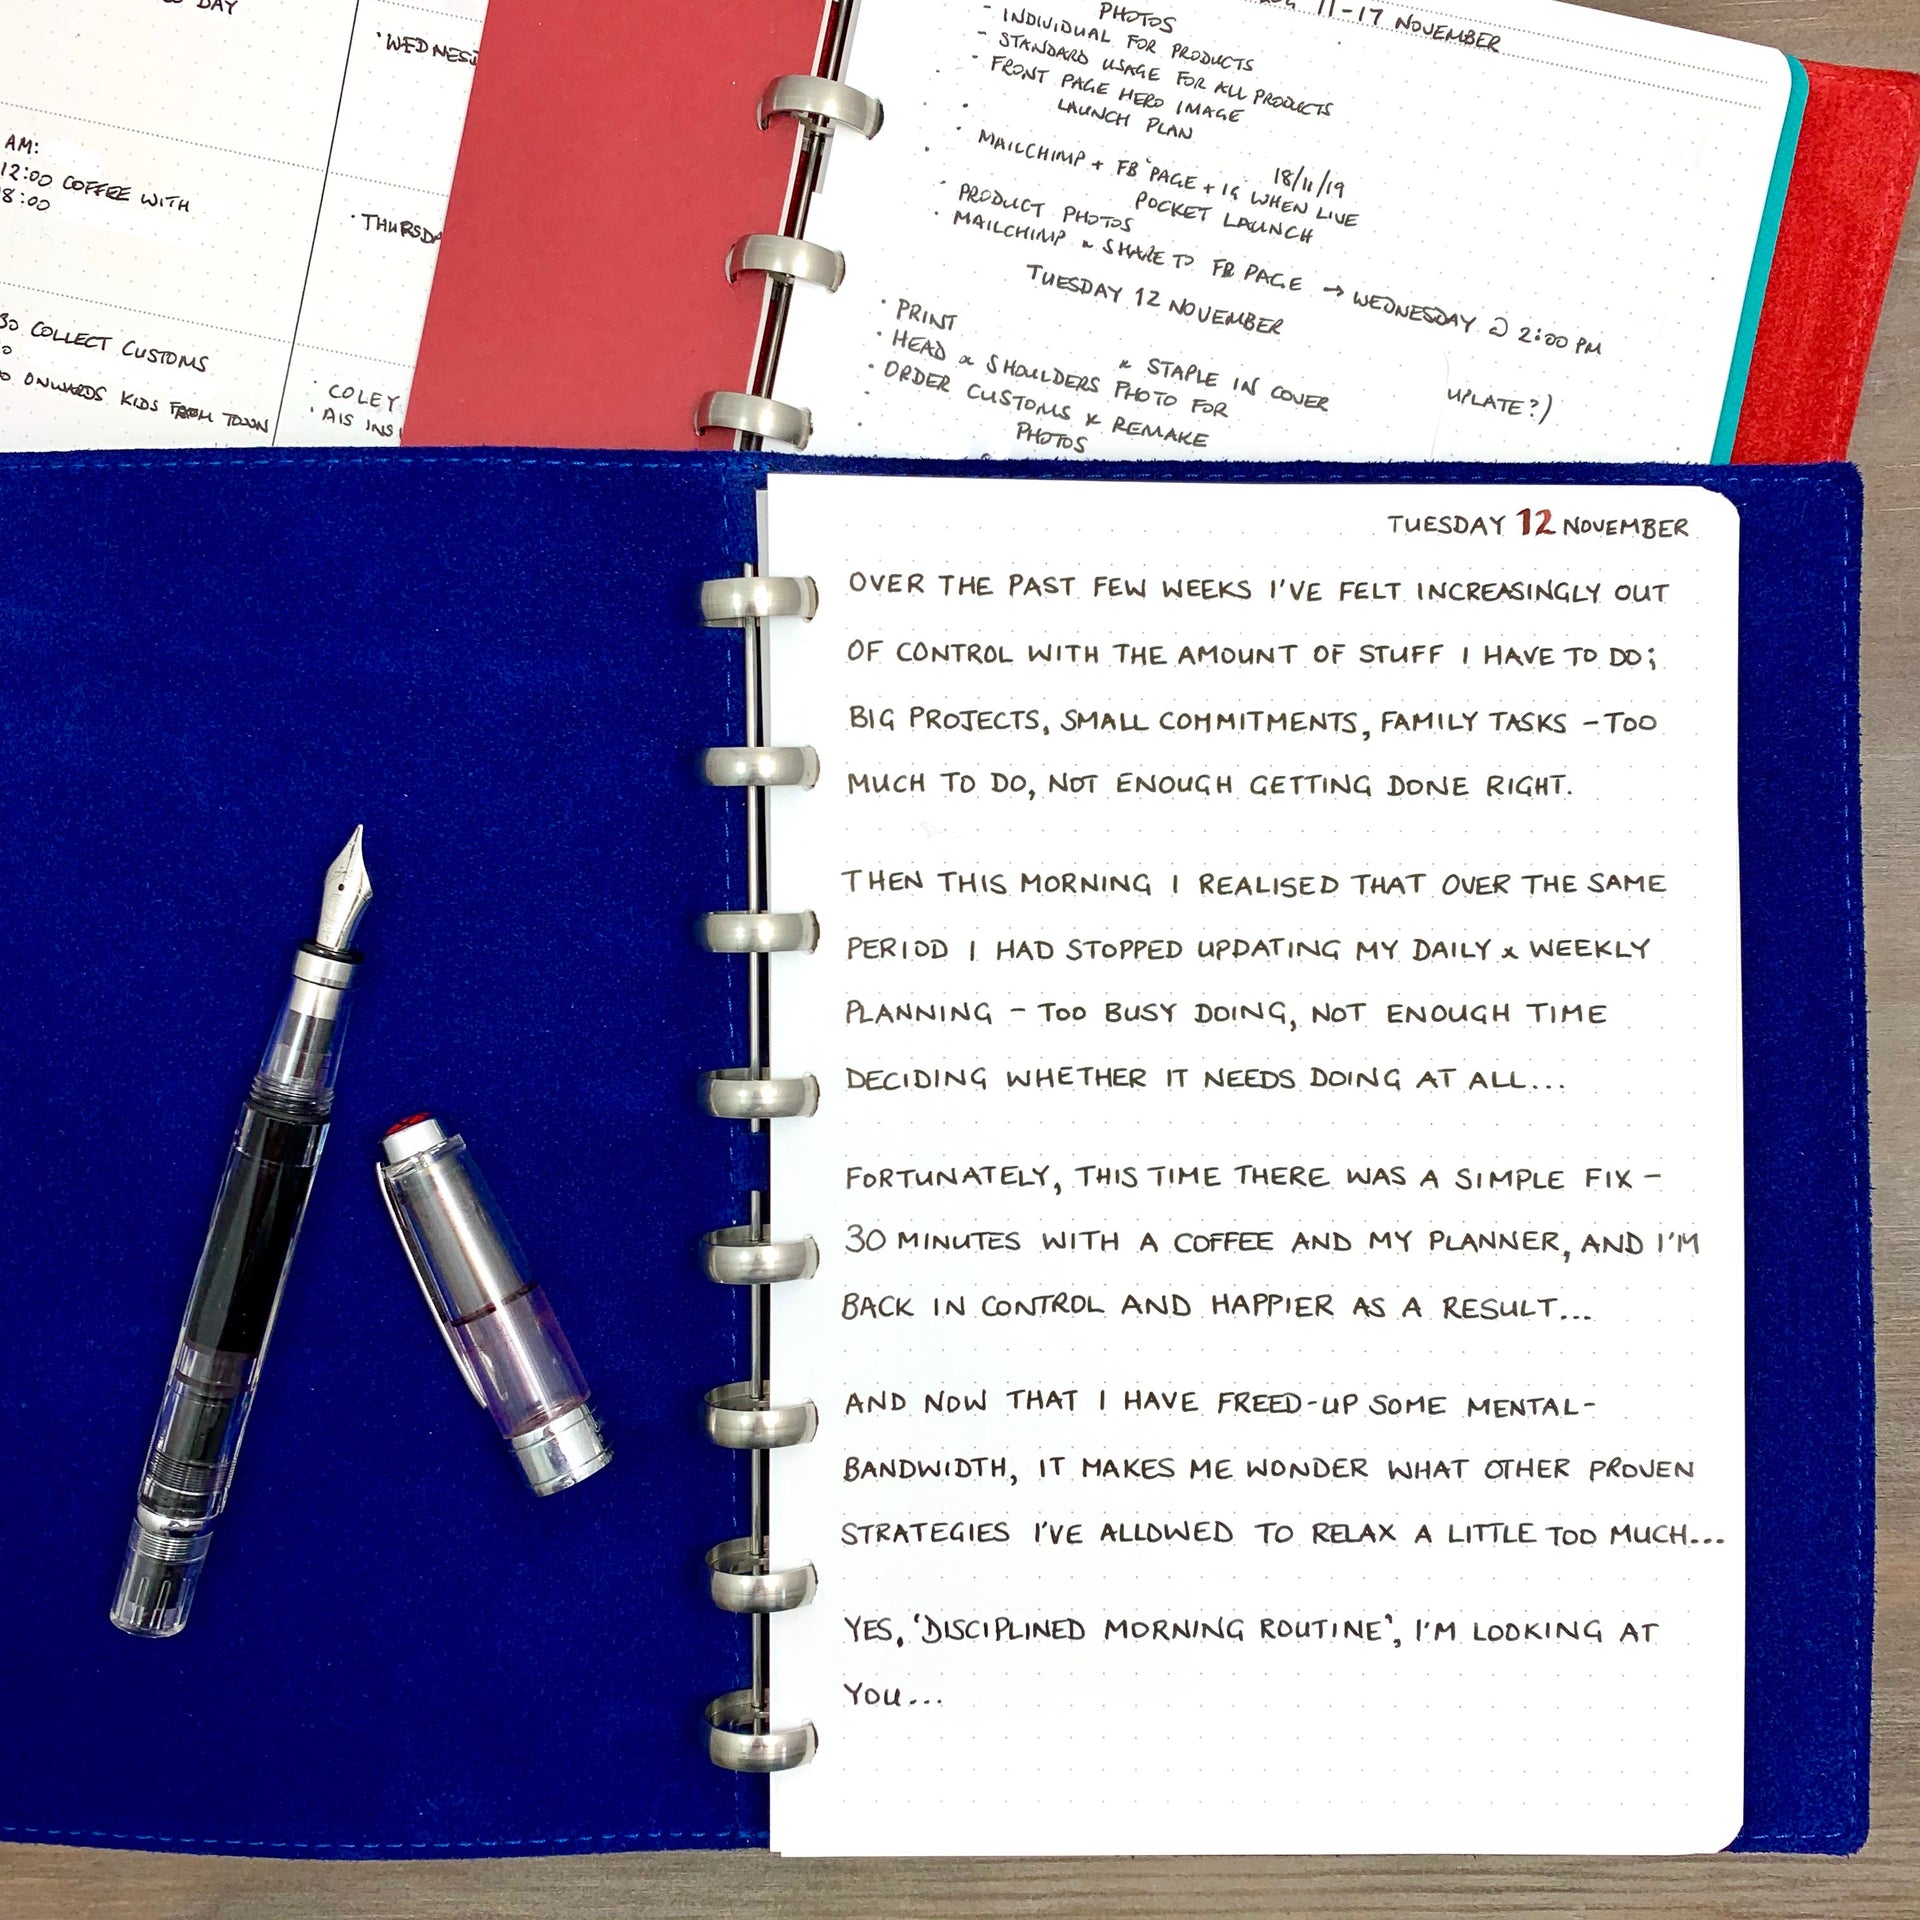 DAY
WEDNES
AM:
12:00 COFFEE WITH
8:00
THURSDA
30 COLLECT CUSTOMS
ONWARDS KIDS FROM TOWN
COLEY
AIS INS
11-17 NOVEMBER
PHOTOS
- INDIVIDUAL FOR PRODUCTS
- STANDARD USAGE FOR ALL PRODUCTS
- FRONT PAGE HERO IMAGE
LAUNCH PLAN
18/11/19
· MAILCHIMP + FB PAGE + IG WHEN LIVE
POCKET LAUNCH
· PRODUCT PHOTOS
· MAILCHIMP & SHARE TO FB PAGE → WEDNESDAY @ 2:00 PM
TUESDAY 12 NOVEMBER
· PRINT & STAPLE IN COVER
· HEAD & SHOULDERS PHOTO FOR UPLATE?)
· ORDER CUSTOMS & REMAKE
PHOTOS
TUESDAY 12 NOVEMBER
OVER THE PAST FEW WEEKS I'VE FELT INCREASINGLY OUT
OF CONTROL WITH THE AMOUNT OF STUFF I HAVE TO DO;
BIG PROJECTS, SMALL COMMITMENTS, FAMILY TASKS - TOO
MUCH TO DO, NOT ENOUGH GETTING DONE RIGHT.
THEN THIS MORNING I REALISED THAT OVER THE SAME
PERIOD I HAD STOPPED UPDATING MY DAILY & WEEKLY
PLANNING - TOO BUSY DOING, NOT ENOUGH TIME
DECIDING WHETHER IT NEEDS DOING AT ALL...
FORTUNATELY, THIS TIME THERE WAS A SIMPLE FIX -
30 MINUTES WITH A COFFEE AND MY PLANNER, AND I'M
BACK IN CONTROL AND HAPPIER AS A RESULT...
AND NOW THAT I HAVE FREED-UP SOME MENTAL-
BANDWIDTH, IT MAKES ME WONDER WHAT OTHER PROVEN
STRATEGIES I'VE ALLOWED TO RELAX A LITTLE TOO MUCH...
YES, 'DISCIPLINED MORNING ROUTINE', I'M LOOKING AT
YOU...